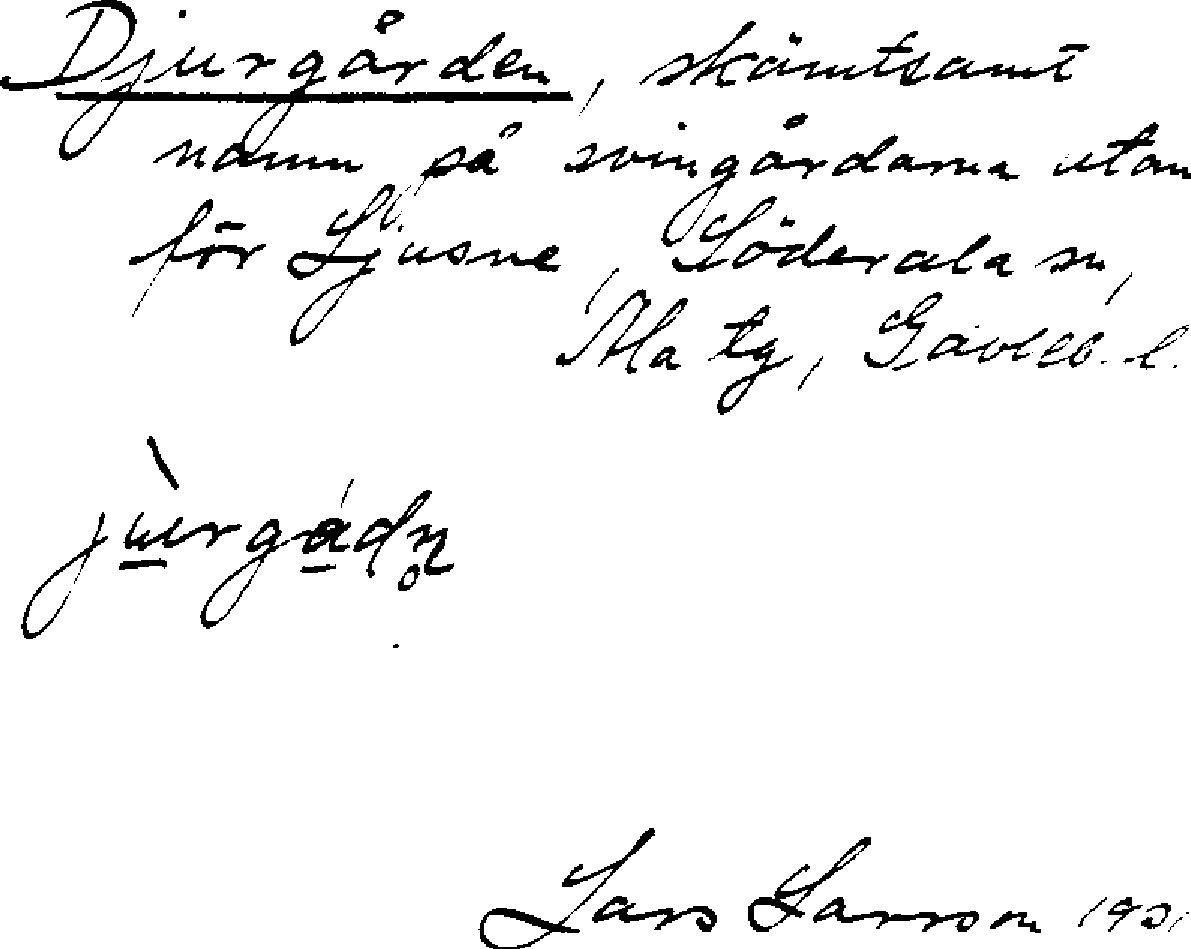 Djurgården, skämtsamt
namn på svingårdarna utan
för Ljusne, Söderala sn,
Ala tg, Gävleb. l.
jùrgádn̥
Lars Larsson